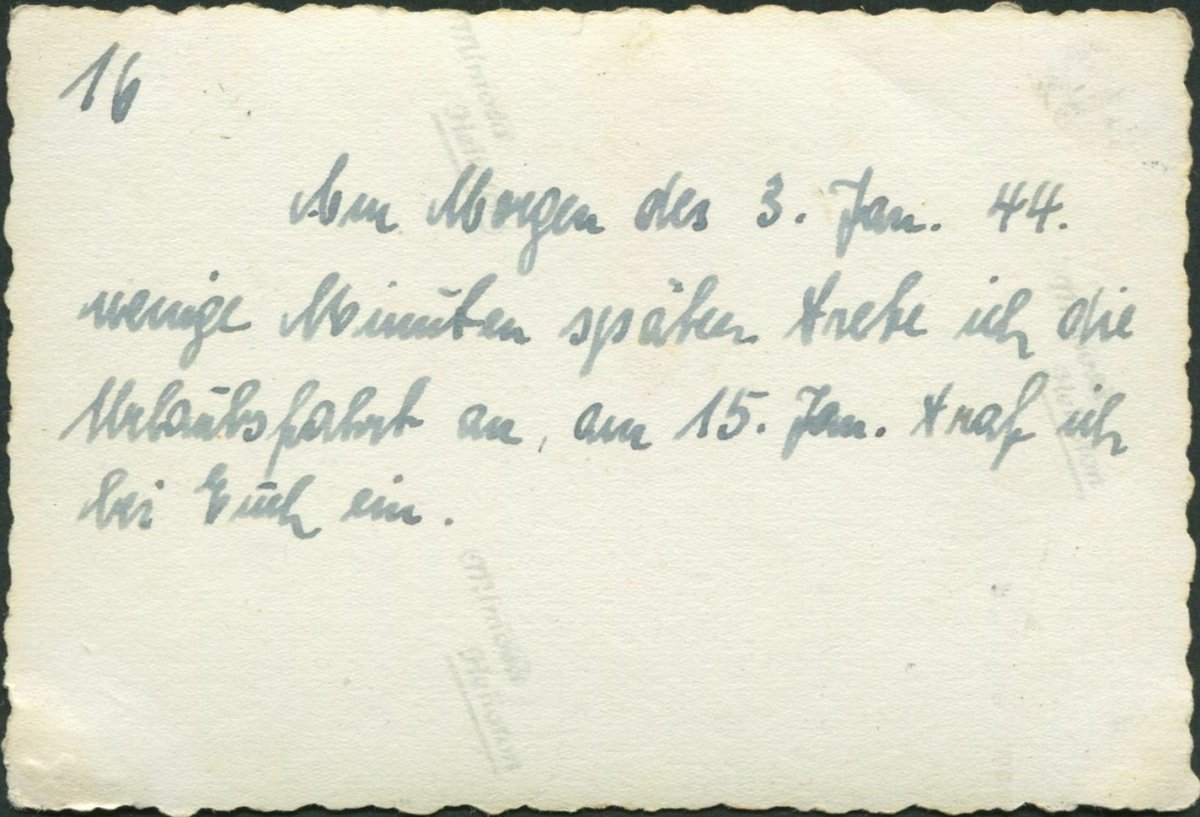 16
Am Morgen des 3. Jan. 44.
wenige Minuten später trete ich die
Urlaubsfahrt an, am 15. Jan. traf ich
bei Euch ein.